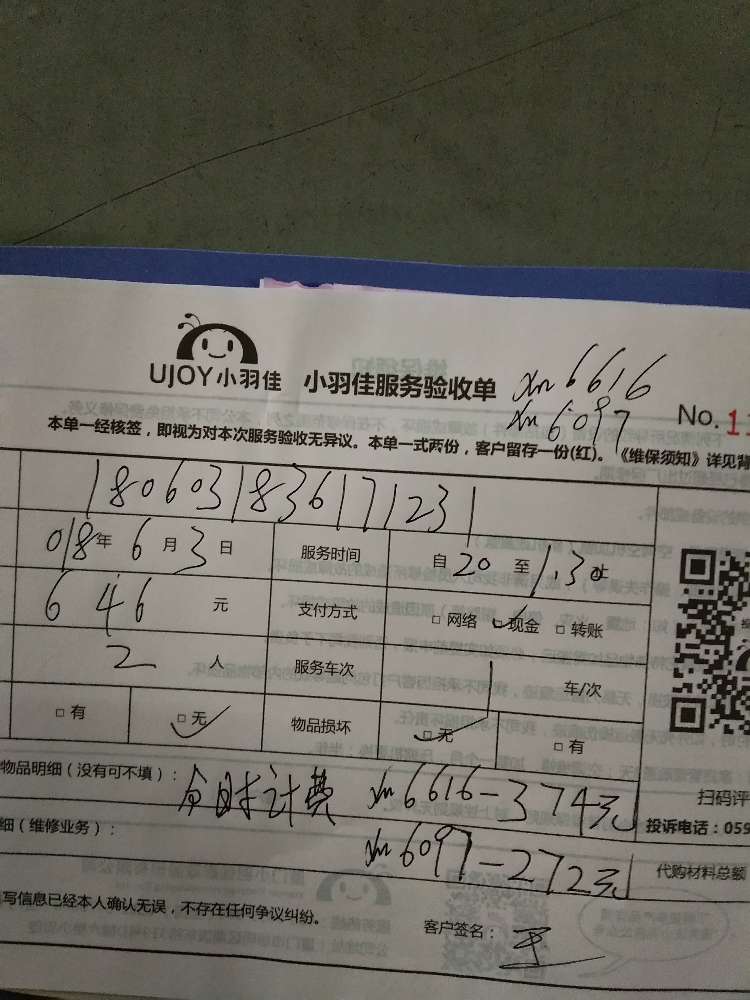 UJOY小羽佳 小羽佳服务验收单 xm6616
xm6097 No.1
本单一经核签，即视为对本次服务验收无异议。本单一式两份，客户留存一份(红)。《维保须知》详见背
180603183617123
018年6月3日 服务时间 自20至1.3止
646元 支付方式 □网络 ☑现金 □转账
2人 服务车次 1 车/次
□有 ☑无 物品损坏 ☑无 □有
物品明细（没有可不填）： 分时计费 xm6616-374元 扫码评
投诉电话：059
细（维修业务）： xm6097-272元 代购材料总额
写信息已经本人确认无误，不存在任何争议纠纷。 客户签名：